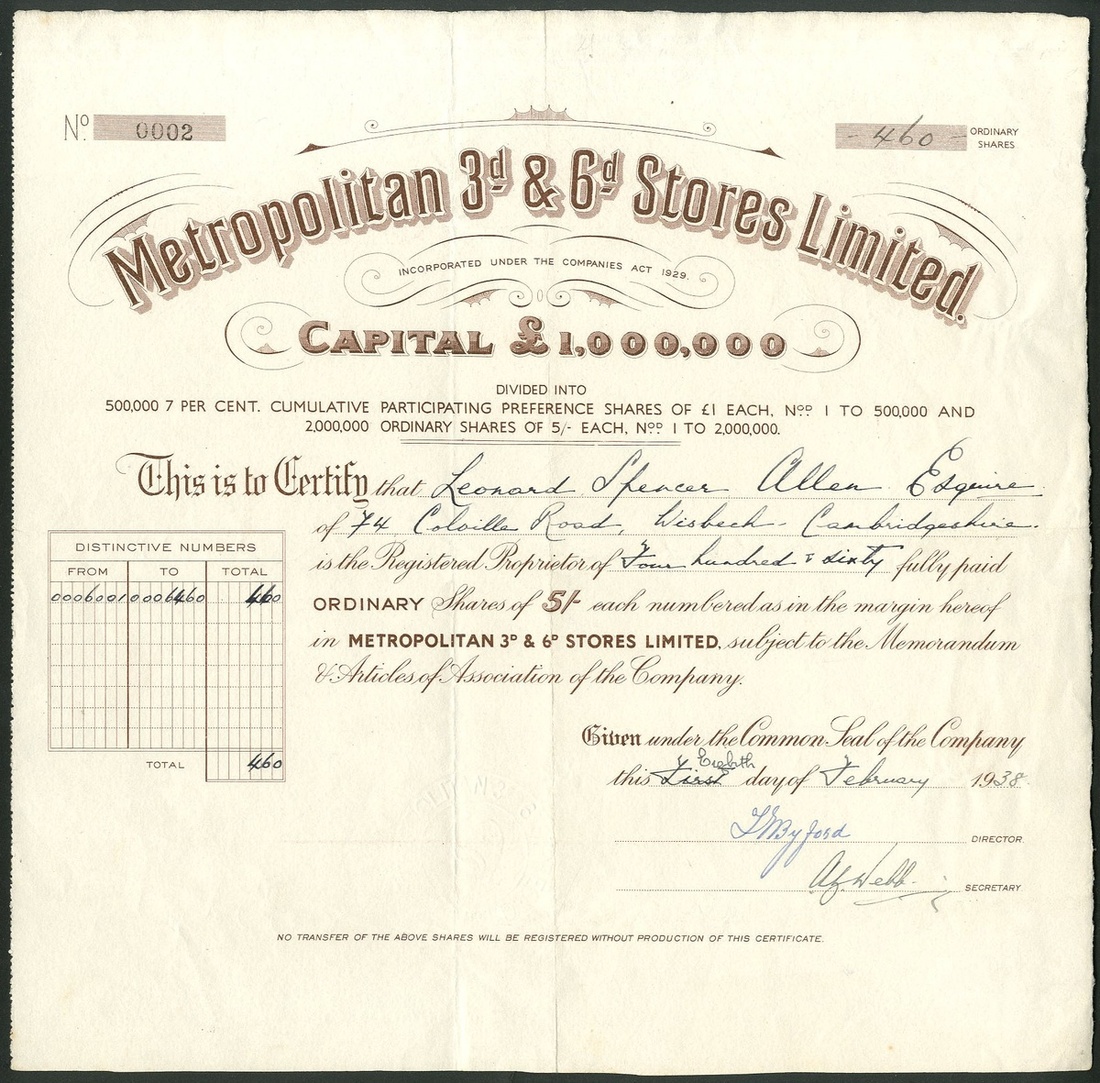 Nº 0002
- 460 - ORDINARY SHARES
Metropolitan 3d & 6d Stores Limited.
INCORPORATED UNDER THE COMPANIES ACT 1929.
CAPITAL £1,000,000
DIVIDED INTO
500,000 7 PER CENT. CUMULATIVE PARTICIPATING PREFERENCE SHARES OF £1 EACH, Nos 1 TO 500,000 AND
2,000,000 ORDINARY SHARES OF 5/- EACH, Nos 1 TO 2,000,000.
This is to Certify that Leonard Spencer Allen Esquire
of 74 Colville Road, Wisbech - Cambridgeshire.
is the Registered Proprietor of Four hundred & sixty fully paid
ORDINARY Shares of 5/- each numbered as in the margin hereof
in METROPOLITAN 3D & 6D STORES LIMITED, subject to the Memorandum
& Articles of Association of the Company.
DISTINCTIVE NUMBERS
FROM TO TOTAL
0006001 0006460 460
TOTAL 460
Given under the Common Seal of the Company
this First Eighth day of February 1938
Byford DIRECTOR
Webb SECRETARY
NO TRANSFER OF THE ABOVE SHARES WILL BE REGISTERED WITHOUT PRODUCTION OF THIS CERTIFICATE.